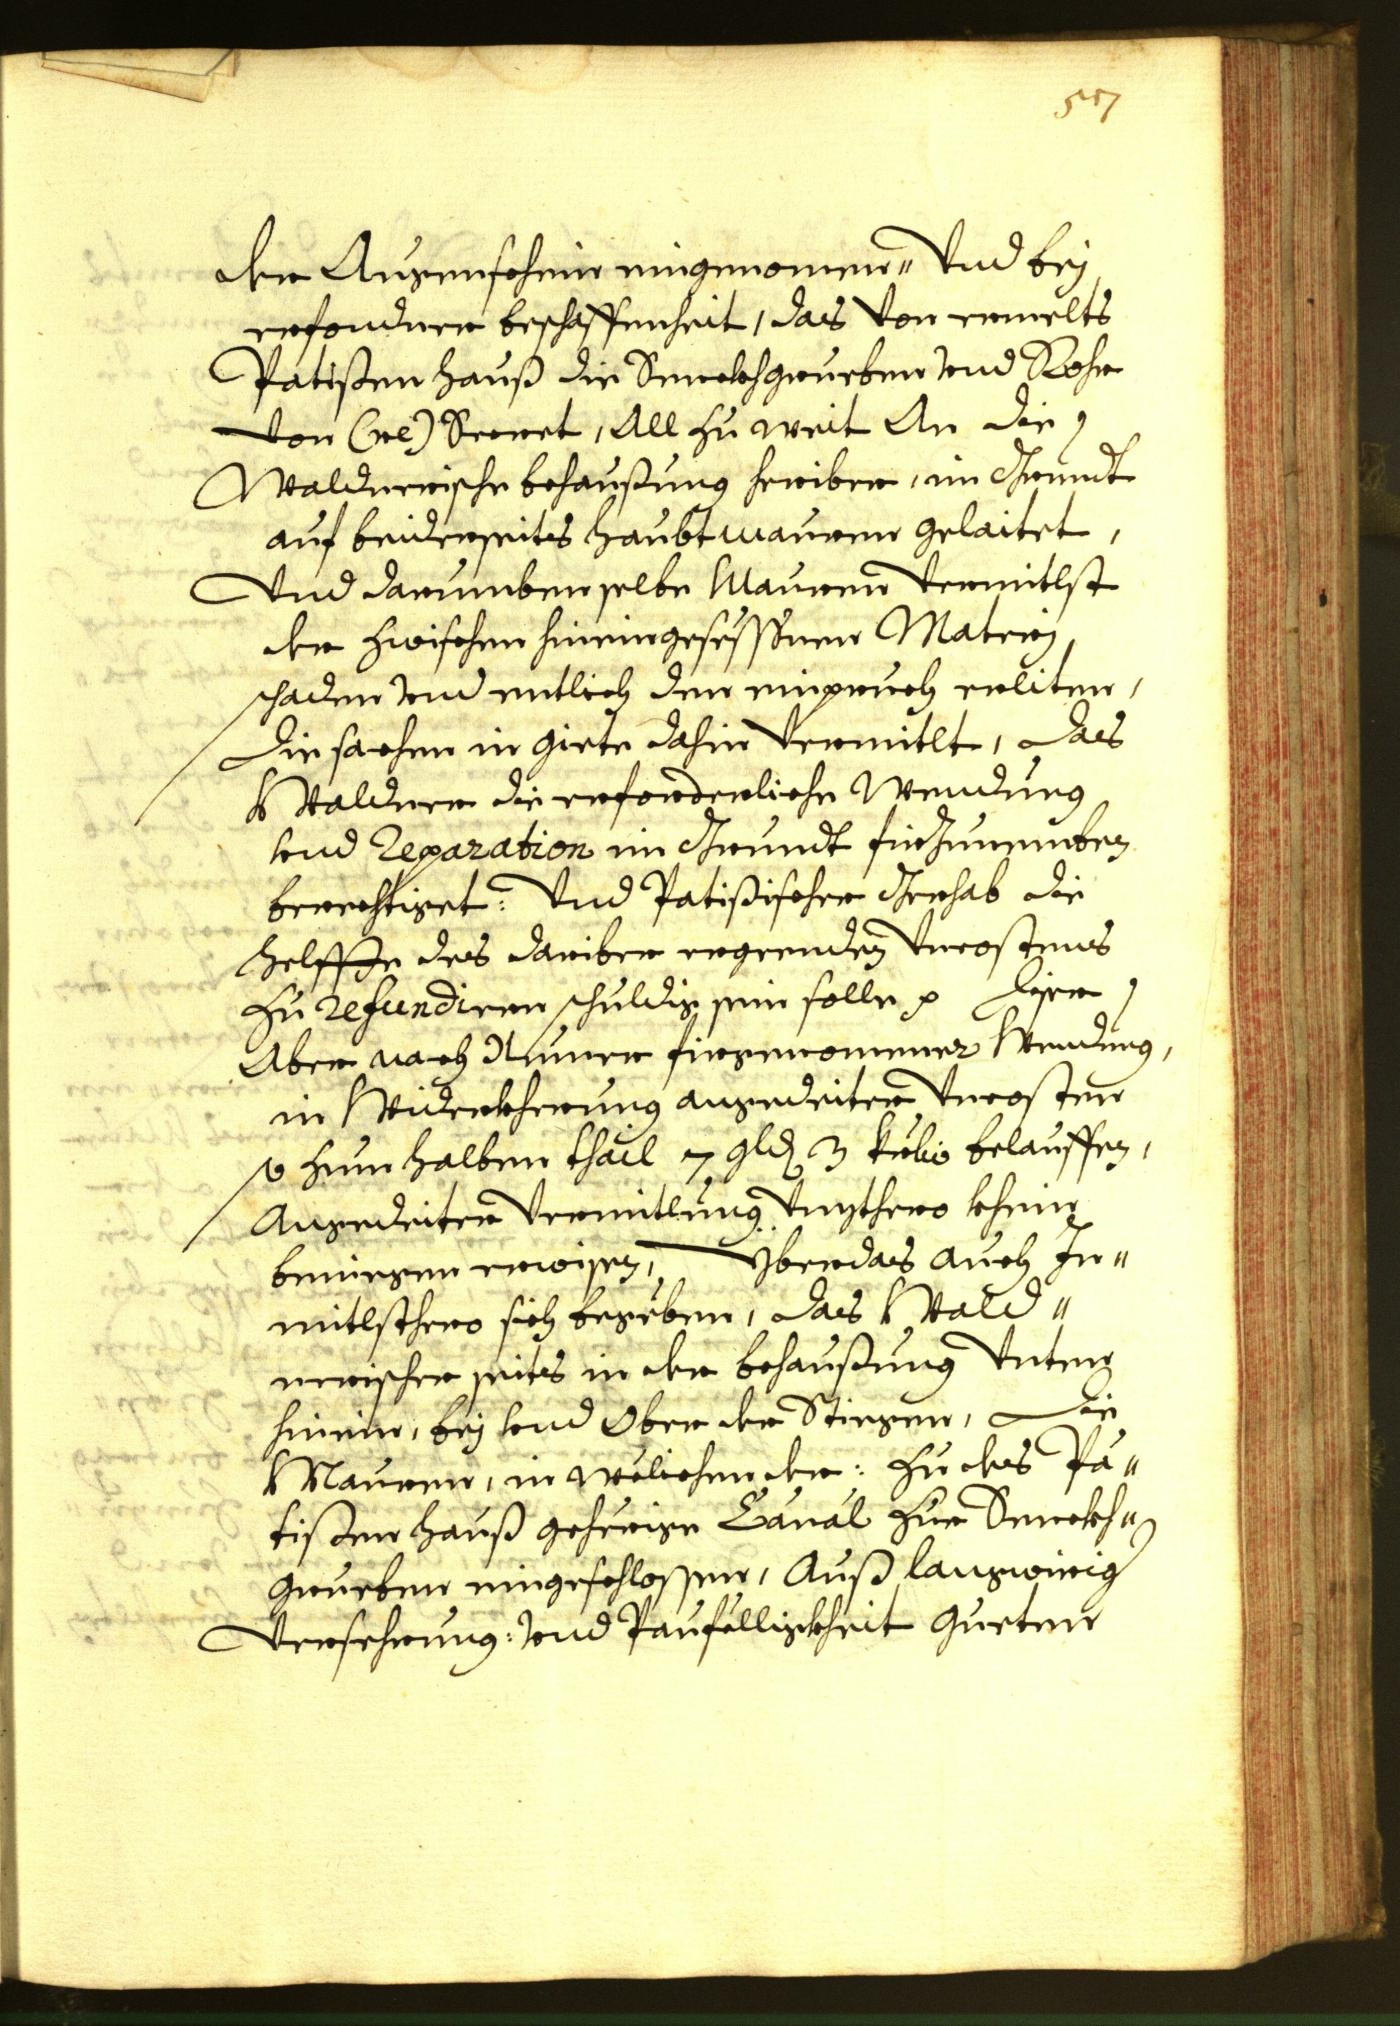 57
der Augenschein eingenomen" Vnd bej
erfondner beschaffenheit, das von ermelts
Patißen hauß die Senckhgrueben vnd Rohr
von (rde) Secret, All zu weit An die
Waldnerische behaußung heriber, im Grundt
auf beiderseits haubtmauren gelaitet,
Vnd darumben selbe Mauren Vermitlst
der zwischen hineingesessnen Materj
schaden vnd entlich den einpruch erliten,
die sachen in giete dahin Vermitlt, das
Waldner die erforderliche Wendung
vnd Reparation im Grundt fürzunemben
berechtiget: Vnd Patißischer Gerhab die
helffte des dariber ergeenden Vncostens
zu refundieren schuldig sein solle
Aber nach Numer fürgenomener Wendung,
in Widerkherung angedeiter Vncosten
so zum halben thail 7 gld 3 belauffen,
Angedeiter Vermitlung khein
beniegen erwisen, Yberdas auch In"
mitlsthero sich begeben, das Wald"
nerischer seits in der behaußung Vnten
hinein, bej vnd Ober der Stiegen, die
Mauren, in welichen der: zu des Pa"
tißen hauß geherige Canal zur Senckh"
grueben eingeschlossen, Auß langwirig
Versehrung: vnd Paufelligkheit gueten